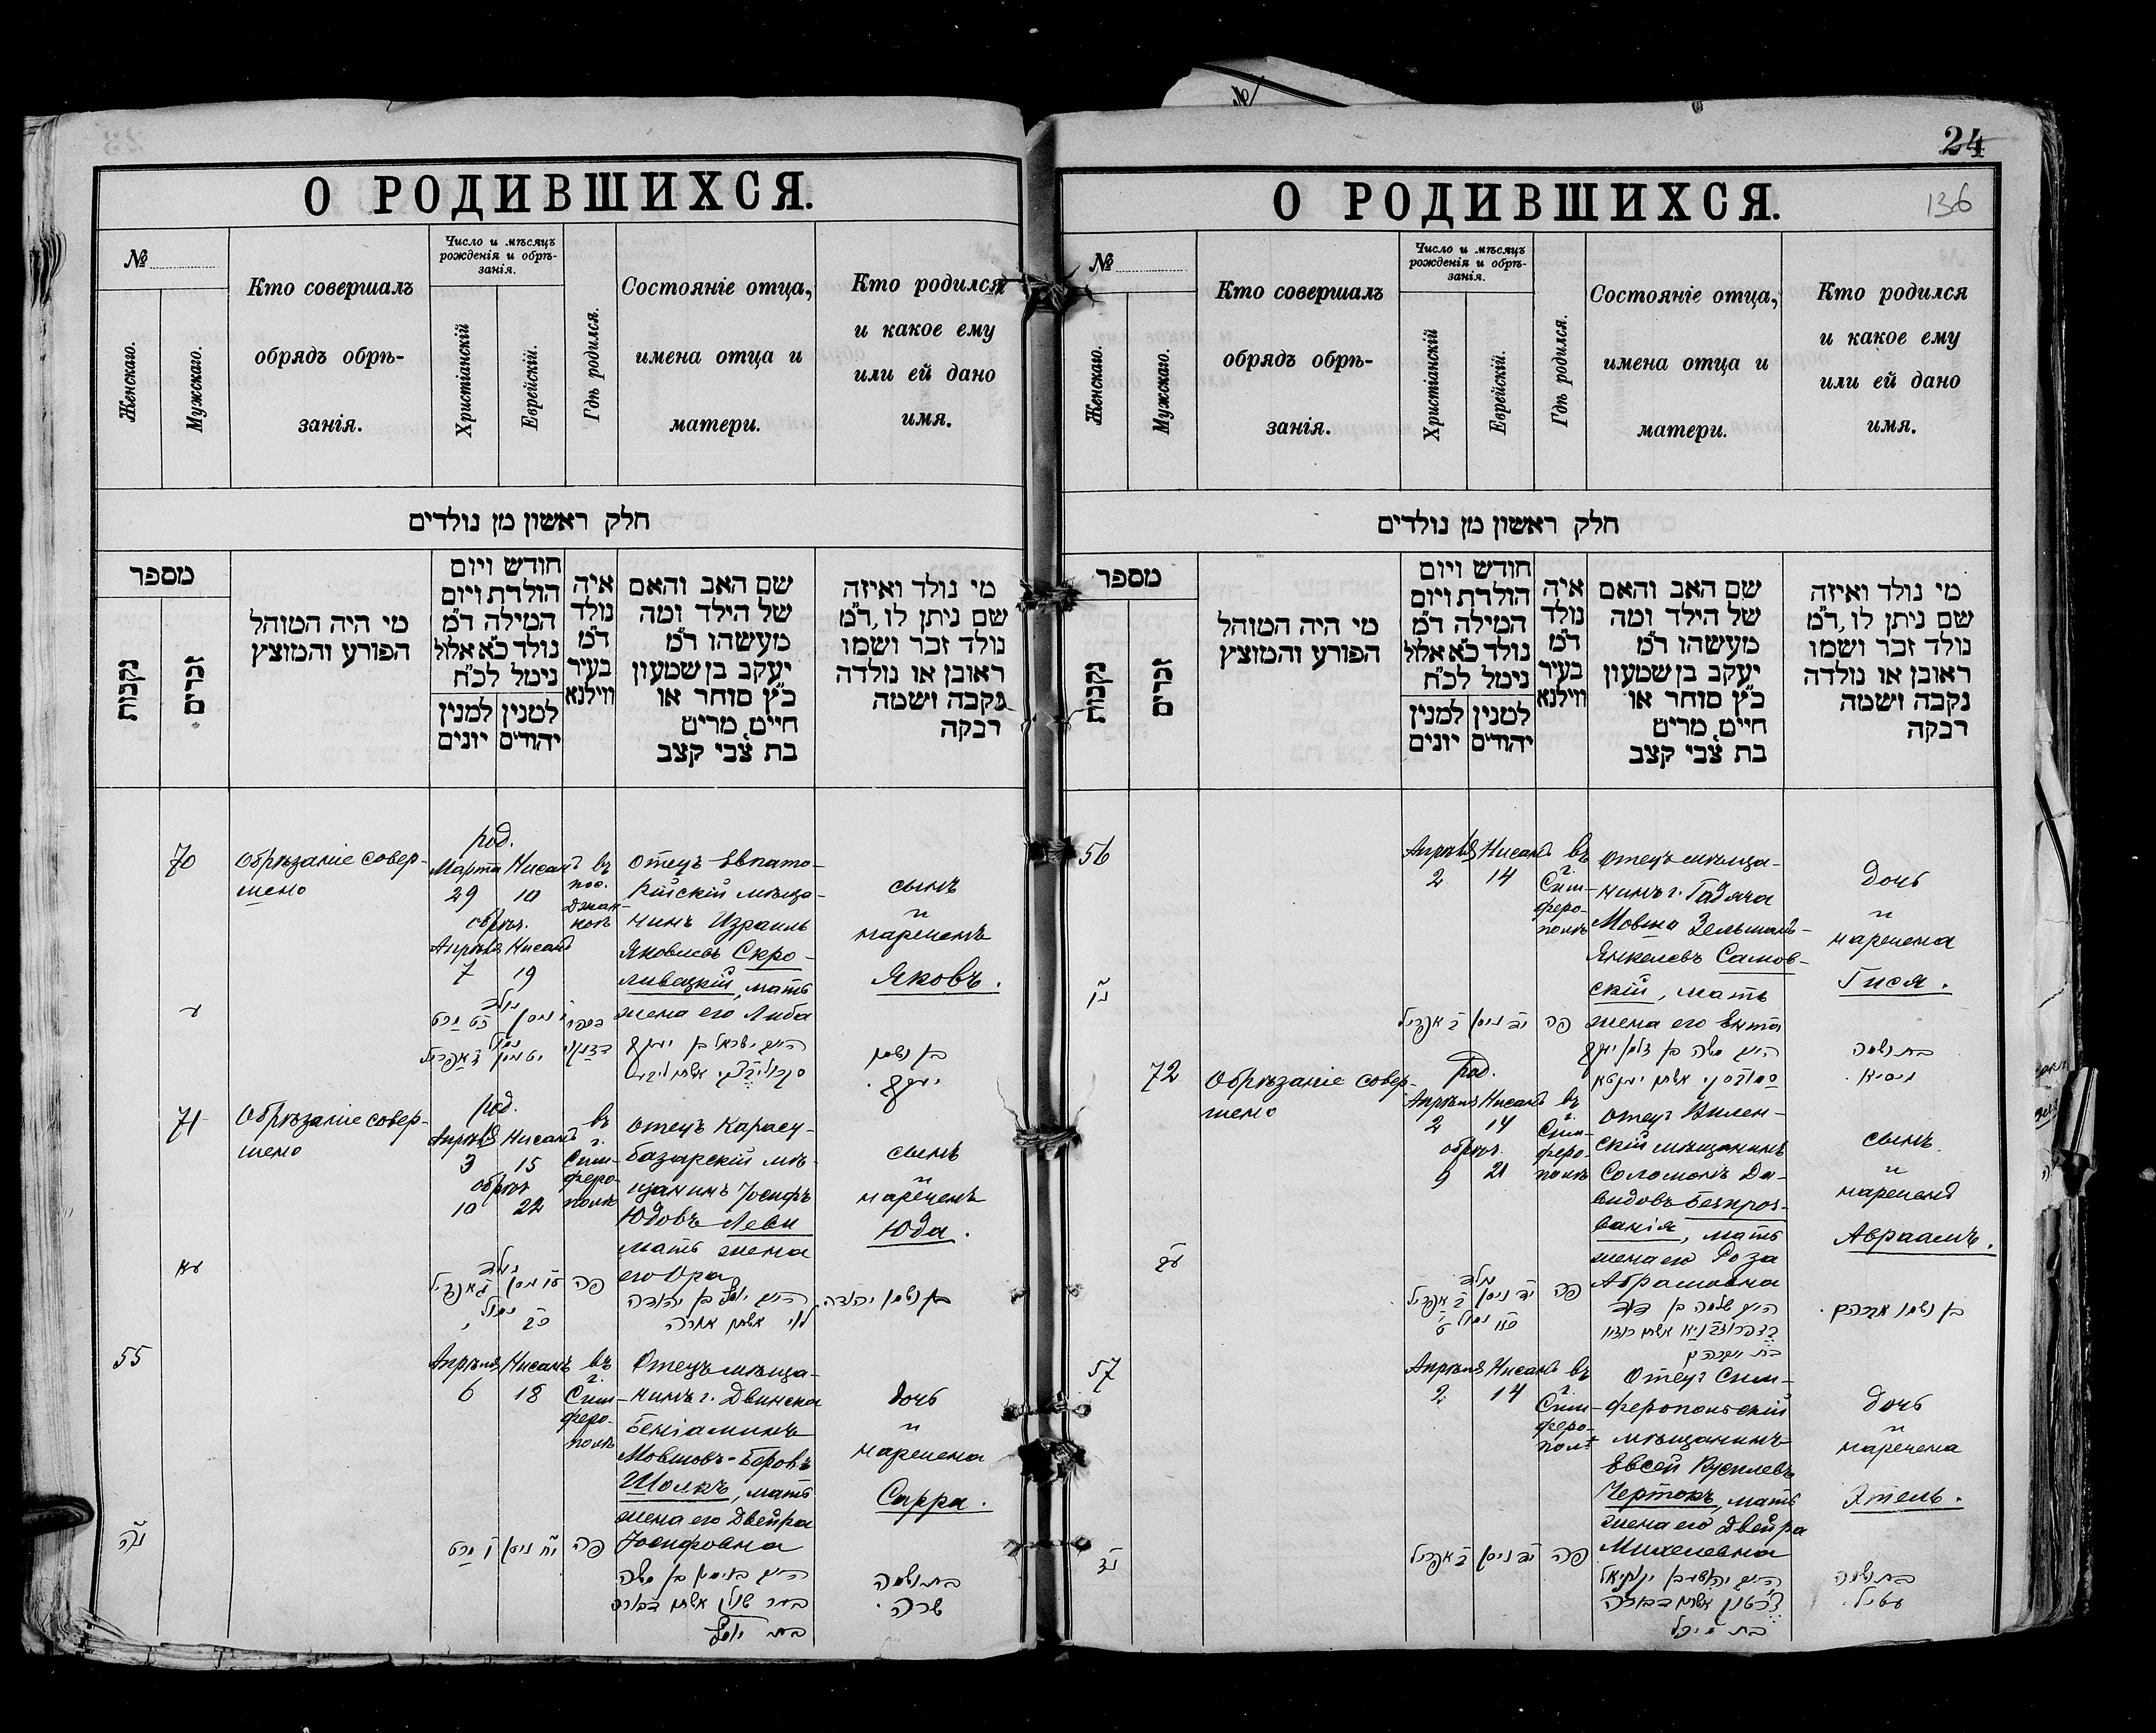 О РОДИВШИХСЯ.
№
Женскаго.
Мужскаго.
Кто совершалъ
обрядъ обрѣ-
занія.
Число и мѣсяцъ
рожденія и обрѣ-
занія.
Христіанскій
Еврейскій.
Гдѣ родился.
Состояніе отца,
имена отца и
матери.
Кто родился
и какое ему
или ей дано
имя.
חלק ראשון מן נולדים
מספר
נקבות
זכרים
מי היה המוהל
הפורע והמוצץ
חודש ויום
הולדת ויום
המילה ד״מ
נולד כ״א אלול
נימל לכ״ח
למנין יהודים
למנין יונים
איה
נולד
ד״מ
בעיר
ווילנא
שם האב והאם
של הילד ומה
מעשהו ד״מ
יעקב בן שמעון
כ״ץ סוחר או
חייט מרים
בת צבי קצב
מי נולד ואיזה
שם ניתן לו, ד״מ
נולד זכר ושמו
ראובן או נולדה
נקבה ושמה
רבקה
70
Обрѣзаніе совер-
шено
род.
Марта Нисанъ
29 10
обрѣз.
Апрѣля Нисанъ
7 19
въ
пос.
Джан-
коѣ
отецъ Евпато-
рійскій мѣща-
нинъ Израиль
Яковлевъ Скро-
ливецкій, мать
жена его Либа
сынъ
и
нареченъ
Яковъ.
ע
נולד
י ניסן
ישראל בן יעקב
בן ושמו
יעקב.
71
Обрѣзаніе совер-
шено
род.
Апрѣля Нисанъ
3 15
обрѣз
10 22
въ
г.
Сим-
феро-
полѣ
отецъ Карасу-
базарскій мѣ-
щанинъ Іосифъ
Юдовъ Леви
мать жена
его Ора
сынъ
и
нареченъ
Юда.
עא
נולד
פה
יוסף בן יהודה
לוי אשתו אורה
בן ושמו יהודה
55
Апрѣля Нисанъ
6 18
въ
г.
Сим-
феро-
полѣ
Отецъ мѣща-
нинъ г. Двинска
Беніаминъ
Мовшовъ-Беровъ
Шолкъ, мать
жена его Двейра
Іосифовна
дочь
и
наречена
Сарра.
נה
יח ניסן
פה
בנימין בן משה
בער שולק אשתו דבורה
בת יוסף
בת ושמה
שרה.
24
136
О РОДИВШИХСЯ.
№
Женскаго.
Мужскаго.
Кто совершалъ
обрядъ обрѣ-
занія.
Число и мѣсяцъ
рожденія и обрѣ-
занія.
Христіанскій
Еврейскій.
Гдѣ родился.
Состояніе отца,
имена отца и
матери.
Кто родился
и какое ему
или ей дано
имя.
חלק ראשון מן נולדים
מספר
נקבות
זכרים
מי היה המוהל
הפורע והמוצץ
חודש ויום
הולדת ויום
המילה ד״מ
נולד כ״א אלול
נימל לכ״ח
למנין יהודים
למנין יונים
איה
נולד
ד״מ
בעיר
ווילנא
שם האב והאם
של הילד ומה
מעשהו ד״מ
יעקב בן שמעון
כ״ץ סוחר או
חייט מרים
בת צבי קצב
מי נולד ואיזה
שם ניתן לו, ד״מ
נולד זכר ושמו
ראובן או נולדה
נקבה ושמה
רבקה
56
Апрѣля Нисанъ
2 14
въ
г.
Сим-
феро-
полѣ
отецъ мѣща-
нинъ г. Гадяча
Мовша Зельманъ-
Янкелевъ Самов-
скій, мать
жена его Ента
дочь
и
наречена
Гися.
נו
יד ניסן ב אפריל
פה
משה בן זלמן יעקב
בת ושמה
גיסיא.
72
Обрѣзаніе совер-
шено
род.
Апрѣля Нисанъ
2 14
обрѣз.
9 21
въ
г.
Сим-
феро-
полѣ
отецъ Вилен-
скій мѣщанинъ
Соломонъ Да-
видовъ Безпроз-
ванія, мать
жена его Роза
Абрамовна
сынъ
и
нареченъ
Авраамъ.
עב
נולד
יד ניסן ב אפריל
פה
שלמה בן דוד
בן ושמו אברהם.
57
Апрѣля Нисанъ
2 14
въ
г.
Сим-
феро-
полѣ
Отецъ Сим-
феропольскій
мѣщанинъ
Евсей Русилевъ
Чертокъ, мать
жена его Двейра
Михелевна
дочь
и
наречена
Этель.
נז
יד ניסן ב אפריל
פה
אשתו דבורה
בת מיכל
בת ושמה
עטיל.